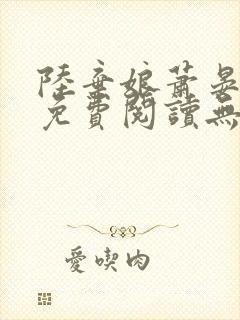 陸棄娘蕭晏
免費閱讀無
愛喫肉